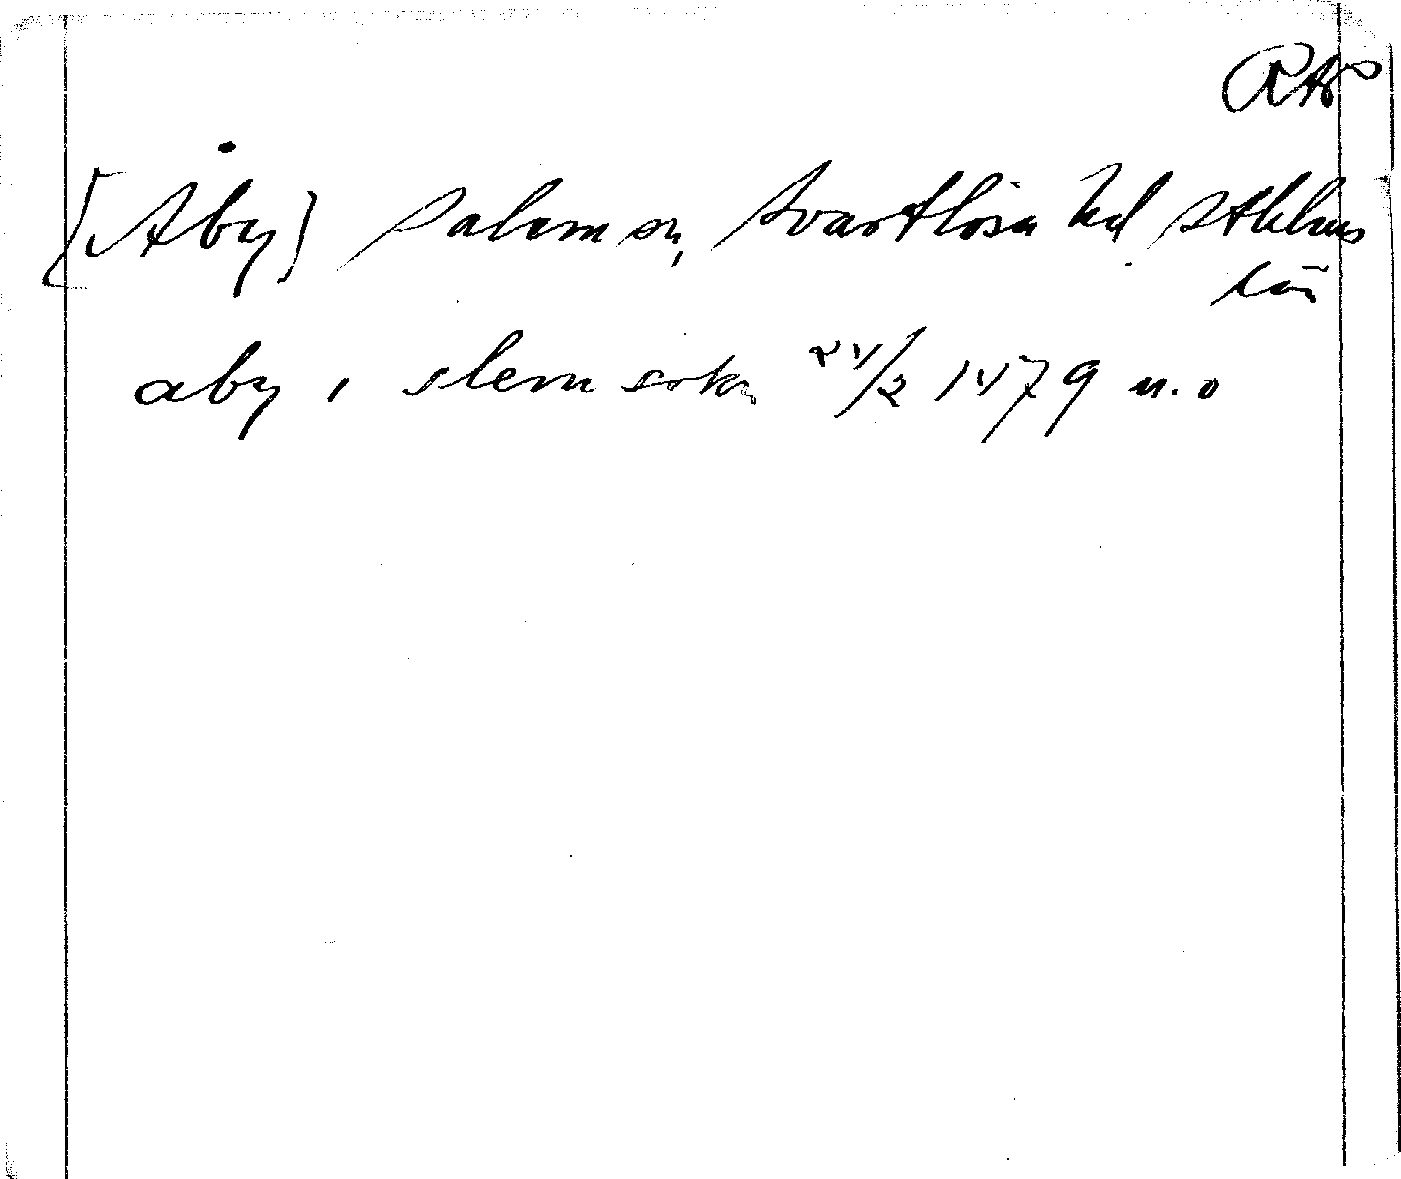 RAÖ
[Åby] Salem sn, Svartlösa hd Sthlms
län
aby i slem sokn 24/2 1479 u.o